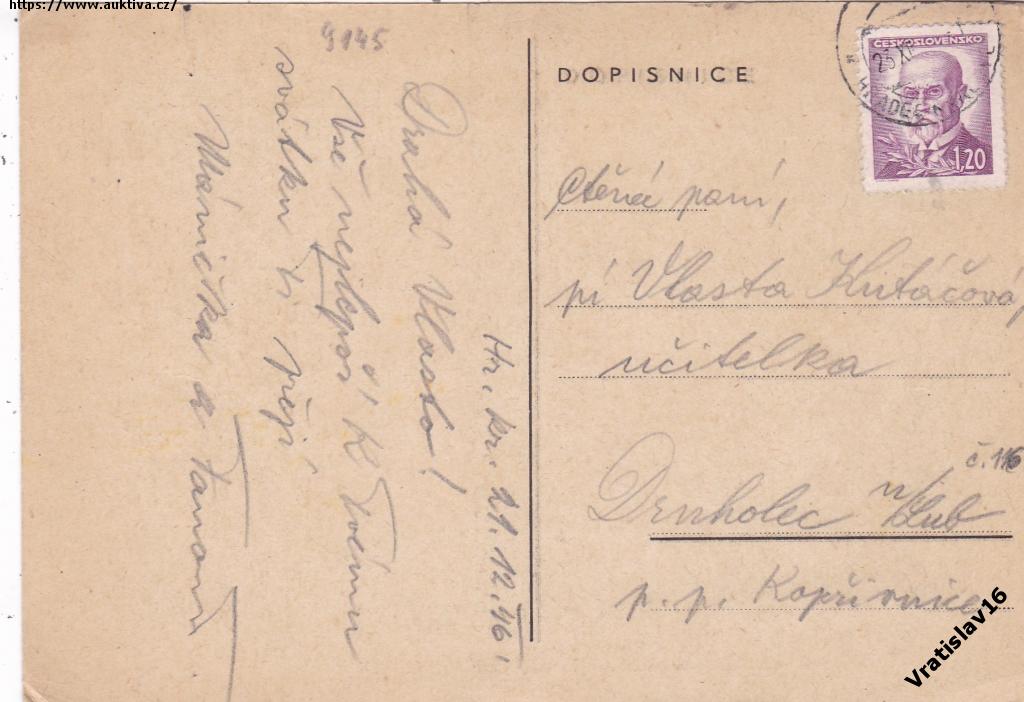 https://www.auktiva.cz/
9145
Hr. Kr. 21. 12. 46.
Drahá Vlasto!
Vše nejlepší k Tvému
svátku ti přejí
Mánička a
DOPISNICE
ČESKOSLOVENSKO
1,20
Ctěná paní,
pí Vlasta Kutáčová
učitelka
č. 116
Drnholec n/Lub
p. p. Kopřivnice
Vratislav16